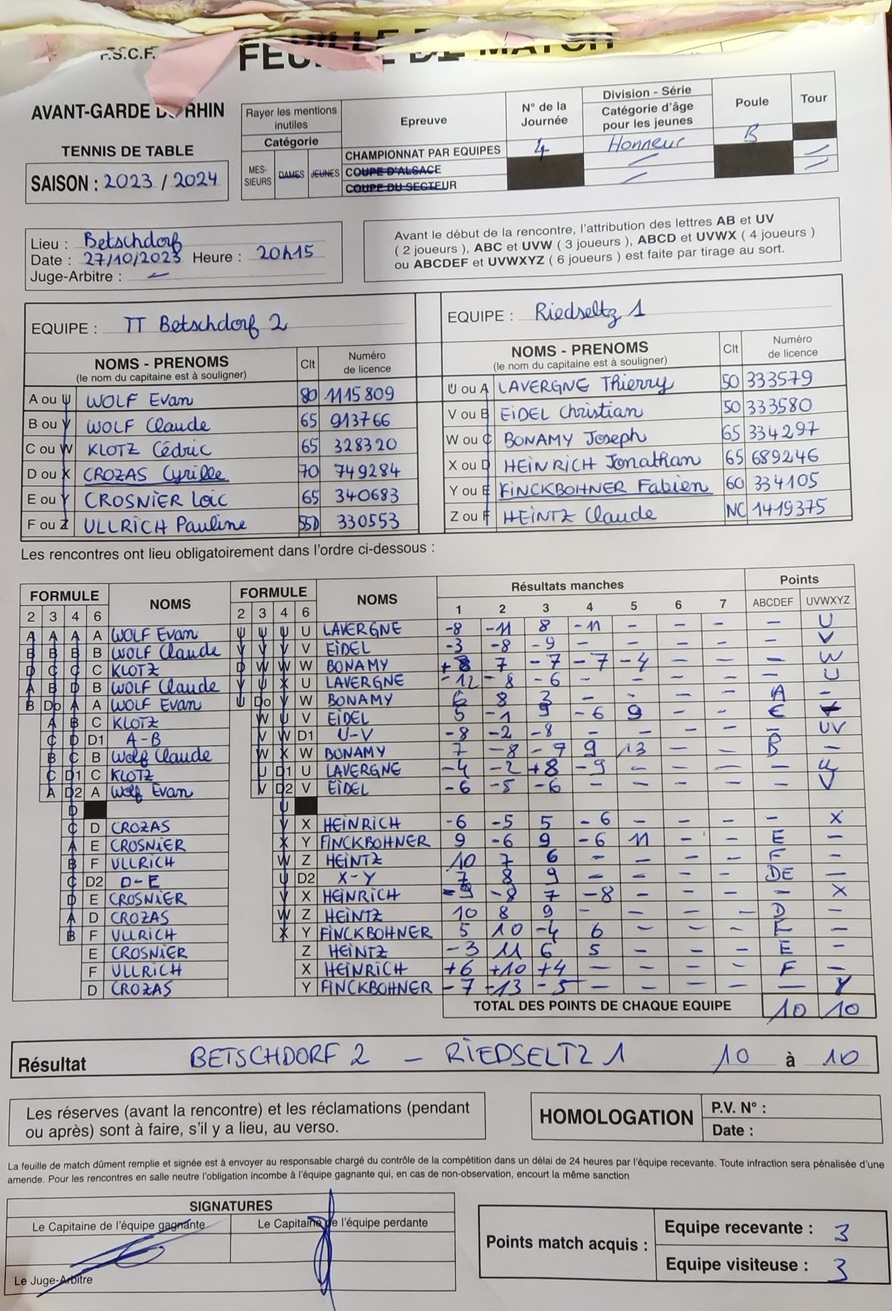 F.S.C.F. FEUILLE DE MATCH
AVANT-GARDE DU RHIN
TENNIS DE TABLE
SAISON : 2023 / 2024
Rayer les mentions inutiles
Catégorie
MES-SIEURS DAMES JEUNES
Epreuve
CHAMPIONNAT PAR EQUIPES
COUPE D'ALSACE
COUPE DU SECTEUR
N° de la Journée
4
Division - Série
Catégorie d'âge pour les jeunes
Honneur
Poule
B
Tour
Lieu : Betschdorf
Date : 27/10/2023 Heure : 20h15
Juge-Arbitre : —
Avant le début de la rencontre, l'attribution des lettres AB et UV
( 2 joueurs ), ABC et UVW ( 3 joueurs ), ABCD et UVWX ( 4 joueurs )
ou ABCDEF et UVWXYZ ( 6 joueurs ) est faite par tirage au sort.
EQUIPE : TT Betschdorf 2
NOMS - PRENOMS (le nom du capitaine est à souligner) Clt Numéro de licence
A ou U WOLF Evan 80 1115809
B ou V WOLF Claude 65 913766
C ou W KLOTZ Cédric 65 328320
D ou X CROZAS Cyrille 70 749284
E ou Y CROSNIER Loic 65 340683
F ou Z ULLRICH Pauline 55D 330553
EQUIPE : Riedseltz 1
NOMS - PRENOMS (le nom du capitaine est à souligner) Clt Numéro de licence
U ou A LAVERGNE Thierry 50 333579
V ou B EIDEL Christian 50 333580
W ou C BONAMY Joseph 65 334297
X ou D HEINRICH Jonathan 65 689246
Y ou E FINCKBOHNER Fabien 60 334105
Z ou F HEINTZ Claude NC 1419375
Les rencontres ont lieu obligatoirement dans l'ordre ci-dessous :
FORMULE NOMS FORMULE NOMS Résultats manches Points
2 3 4 6 2 3 4 6 1 2 3 4 5 6 7 ABCDEF UVWXYZ
A A A A WOLF Evan U U U U LAVERGNE -8 -11 8 -11 - - - - U
B B B B WOLF Claude V V V V EIDEL -3 -8 -9 - - - - - V
D C C C KLOTZ D W W W BONAMY +8 7 -7 -7 -4 - - - W
A B D B WOLF Claude V U X U LAVERGNE -12 -8 -6 - - - - - U
B Do A A WOLF Evan U Do V W BONAMY 6 8 3 - - - - A -
A B C KLOTZ W U V EIDEL 5 -1 9 -6 9 - - C
C D D1 A-B V W D1 U-V -8 -2 -8 - - - - - UV
B C B Wolf Claude W X W BONAMY 7 -8 -7 9 13 - - B -
C D1 C KLOTZ U D1 U LAVERGNE -4 -2 +8 -9 - - - - U
A D2 A Wolf Evan V D2 V EIDEL -6 -5 -6 - - - - - V
D U
C D CROZAS V X HEINRICH -6 -5 5 -6 - - - - X
A E CROSNIER X Y FINCKBOHNER 9 -6 9 -6 11 - - E -
B F ULLRICH W Z HEINTZ 10 7 6 - - - - F -
C D2 D-E U D2 X-Y 7 8 9 - - - - DE -
D E CROSNIER V X HEINRICH -9 -8 7 -8 - - - - X
A D CROZAS W Z HEINTZ 10 8 9 - - - - D -
B F ULLRICH X Y FINCKBOHNER 5 10 -4 6 - - - F -
E CROSNIER Z HEINTZ -3 11 6 5 - - - E -
F ULLRICH X HEINRICH +6 +10 +4 - - - - F -
D CROZAS Y FINCKBOHNER -7 -13 -5 - - - - - Y
TOTAL DES POINTS DE CHAQUE EQUIPE 10 10
Résultat BETSCHDORF 2 - RIEDSELTZ 1 10 à 10
Les réserves (avant la rencontre) et les réclamations (pendant
ou après) sont à faire, s'il y a lieu, au verso.
HOMOLOGATION
P.V. N° :
Date :
La feuille de match dûment remplie et signée est à envoyer au responsable chargé du contrôle de la compétition dans un délai de 24 heures par l'équipe recevante. Toute infraction sera pénalisée d'une
amende. Pour les rencontres en salle neutre l'obligation incombe à l'équipe gagnante qui, en cas de non-observation, encourt la même sanction
SIGNATURES
Le Capitaine de l'équipe gagnante Le Capitaine de l'équipe perdante
Le Juge-Arbitre
Points match acquis :
Equipe recevante : 3
Equipe visiteuse : 3